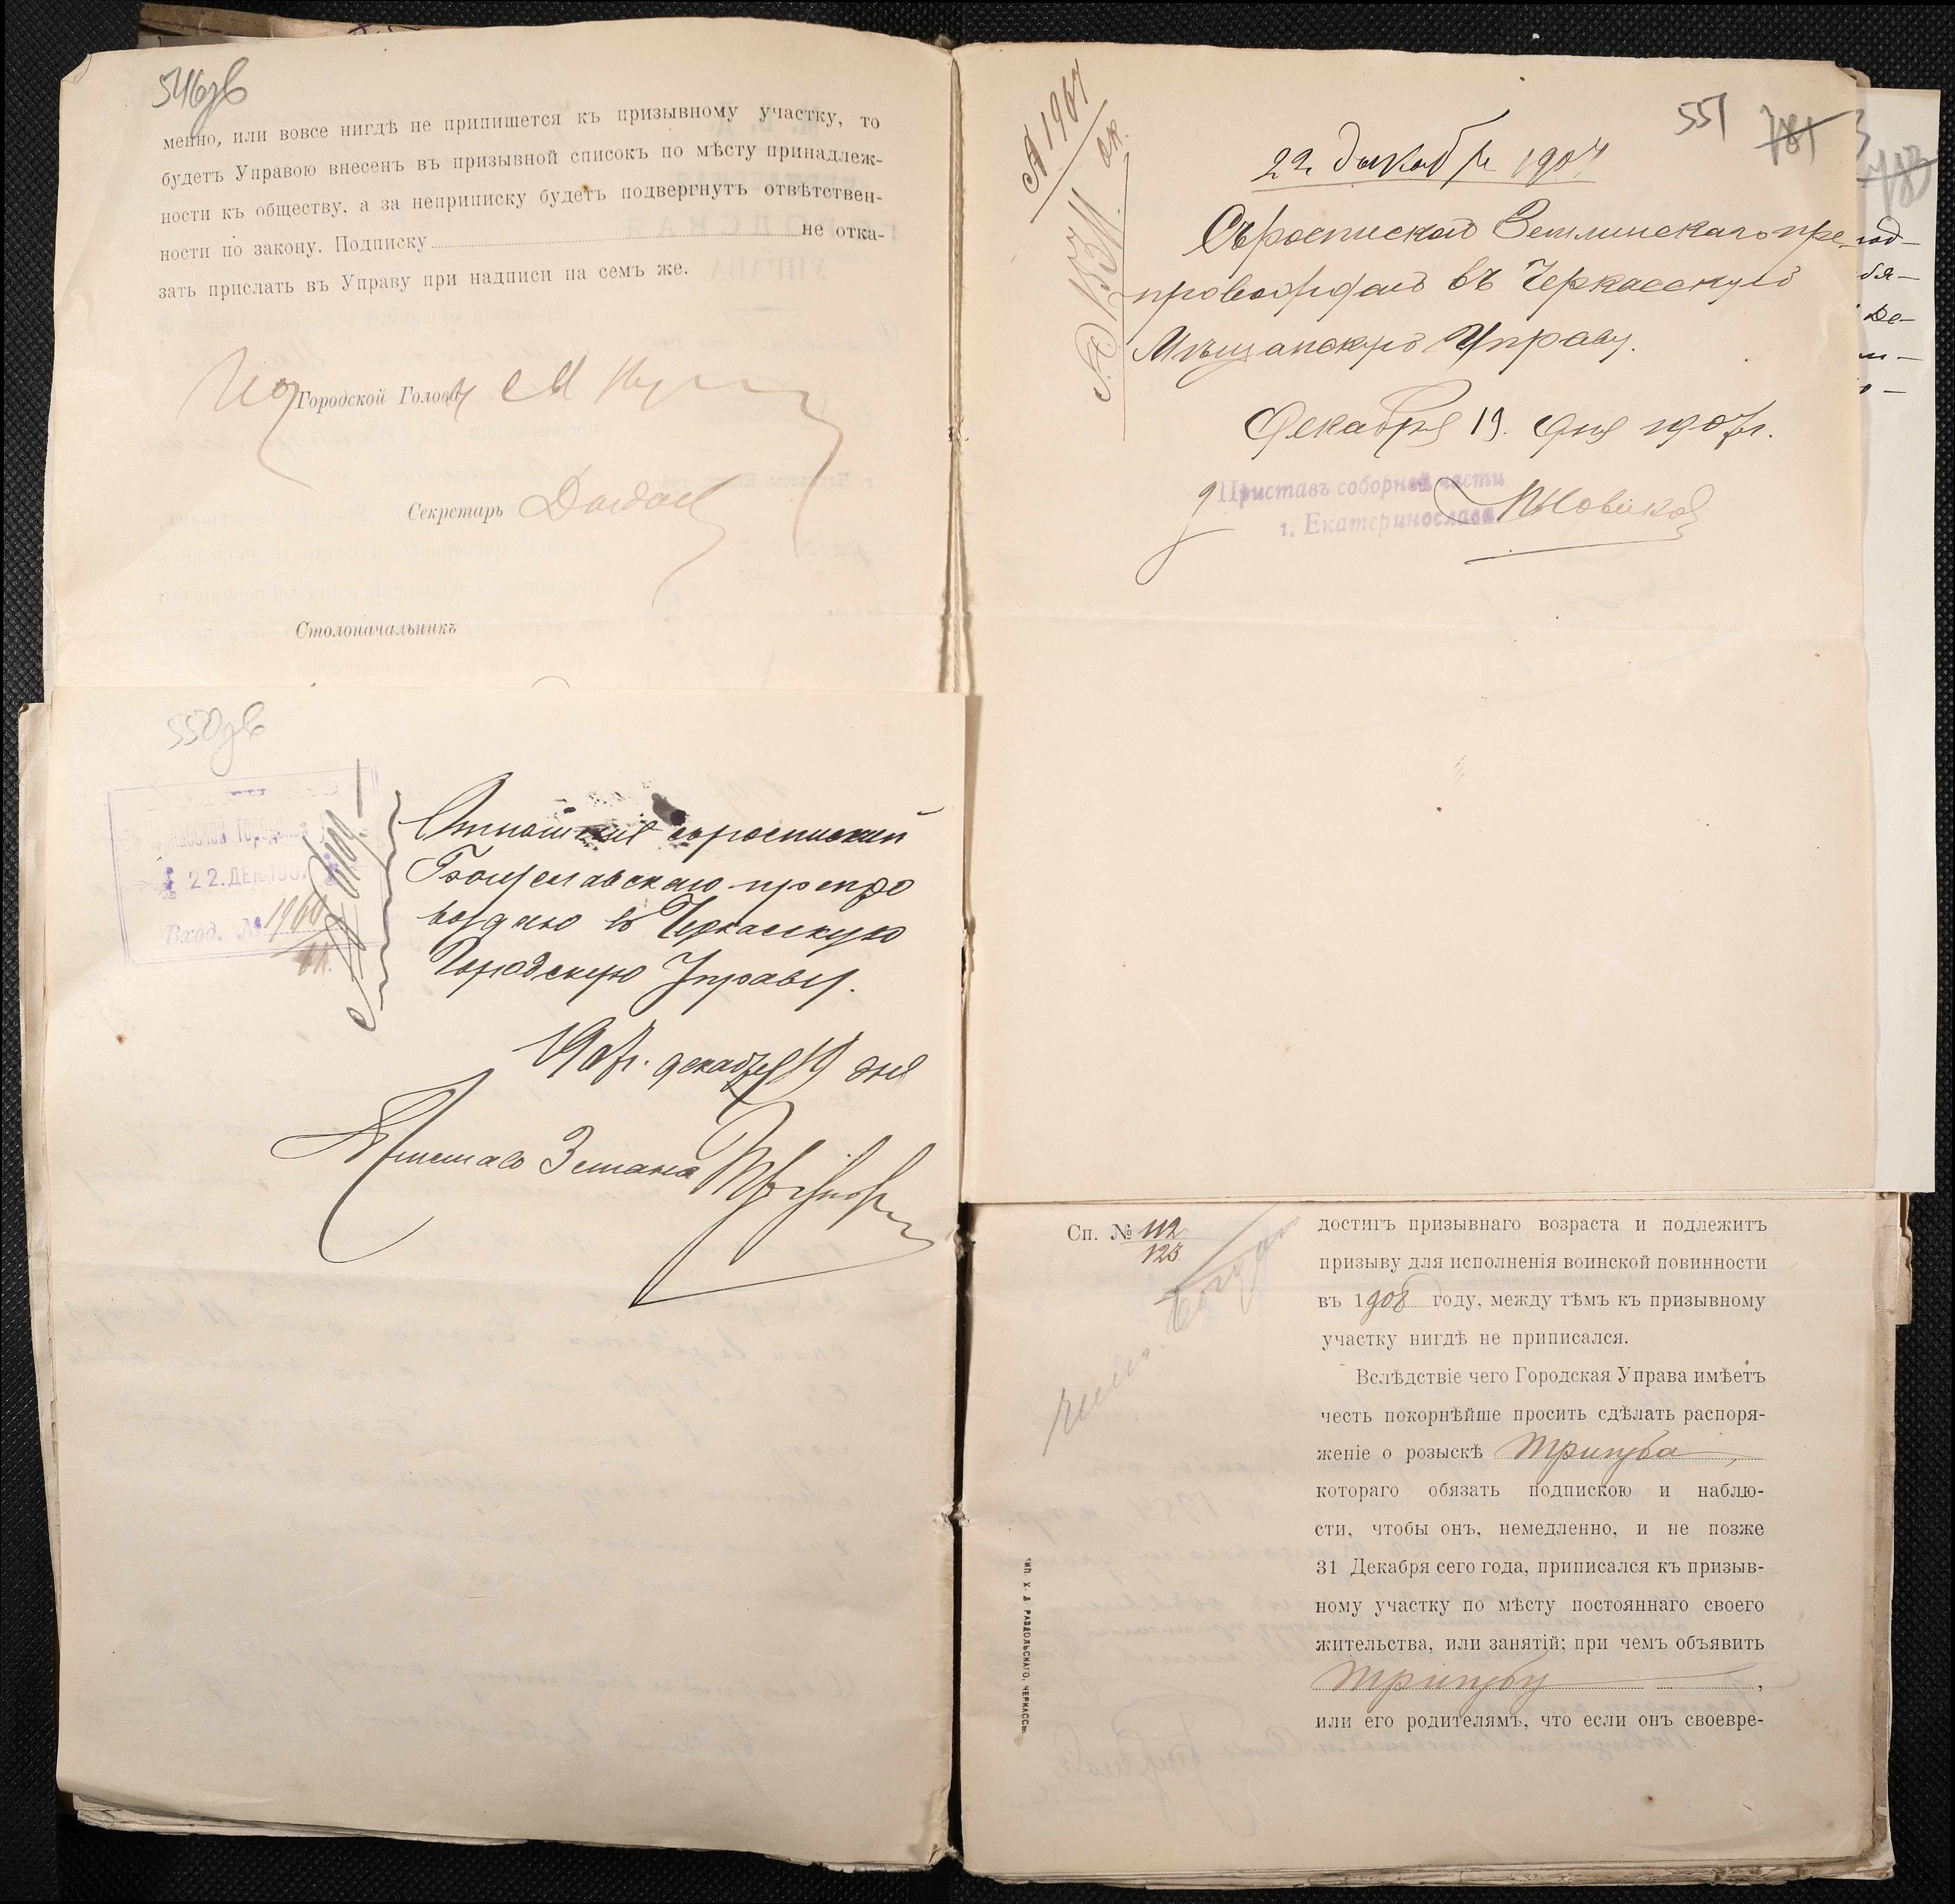 546зв
менно, или вовсе нигдѣ не припишется къ призывному участку, то
будетъ Управою внесенъ въ призывной списокъ по мѣсту принадлеж-
ности къ обществу, а за неприписку будетъ подвергнутъ отвѣтствен-
ности по закону. Подписку не отка-
зать прислать въ Управу при надписи на семъ же.
Городской Голова
Секретарь
Столоначальникъ
550зв
22.ДЕК.1907
Вход. №
Отношеніе съ роспиской
Богуславскаго препро
вождаю въ Черкасскую
Городскую Управу.
1907г. декабря 19 дня
Приставъ 3 стана
551
781
22 декабря 1907
Съ роспиской Земминскаго пре
провождаю въ Черкасскую
Мѣщанскую Управу.
Декабря 19. дня 1907г.
Приставъ соборной части
г. Екатеринослава
Новиков
Сп. № 112
123
достигъ призывнаго возраста и подлежитъ
призыву для исполненія воинской повинности
въ 1908 году, между тѣмъ къ призывному
участку нигдѣ не приписался.
Вслѣдствіе чего Городская Управа имѣетъ
честь покорнѣйше просить сдѣлать распоря-
женіе о розыскѣ Тригуба,
котораго обязать подпискою и наблю-
сти, чтобы онъ, немедленно, и не позже
31 Декабря сего года, приписался къ призыв-
ному участку по мѣсту постояннаго своего
жительства, или занятій; при чемъ объявить
Тригубу,
или его родителямъ, что если онъ своевре-
ТИП. Х. Д. РАЗДОЛЬСКАГО, ЧЕРКАССЫ.